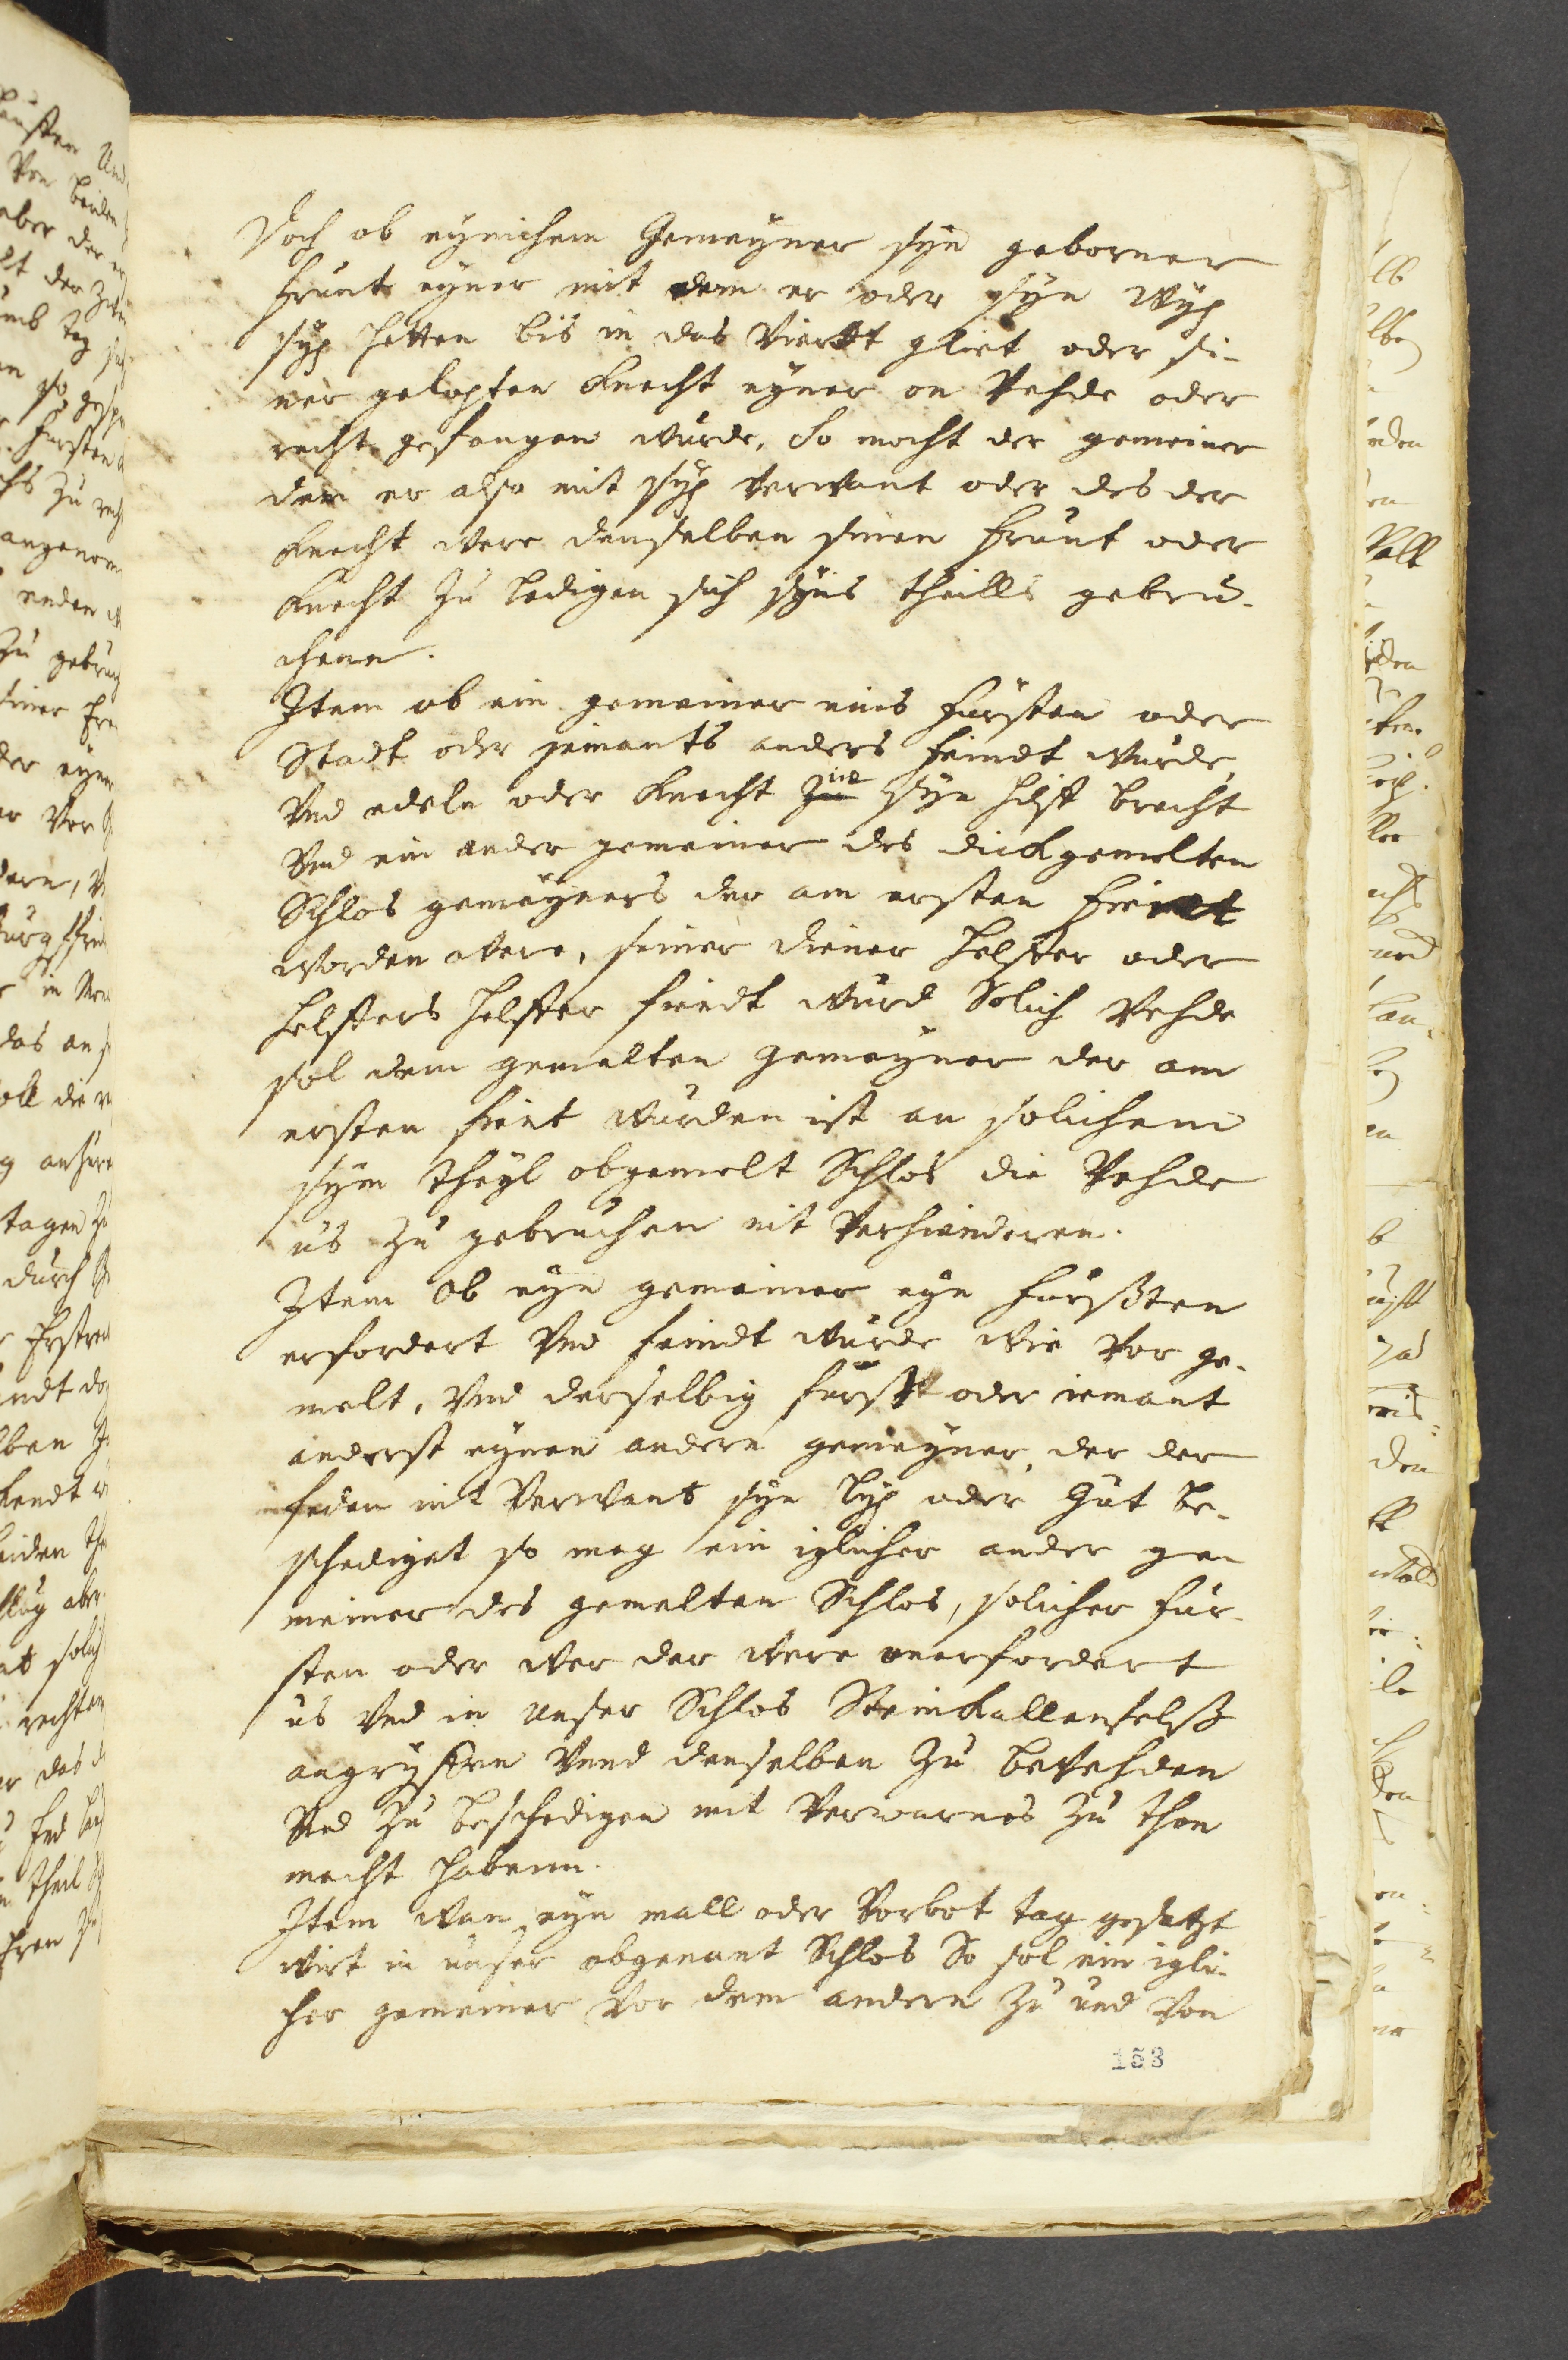 Doch ob eynichem Gemeyner syn geborner
frunt eyner mit dem er oder syn wyp
syp hetten bis in das Viertt gliet oder si-
ner gelopten knecht eyner on Vehde oder
recht gefangen wurde, So mocht der gemeiner
dem er also mit syp verwant oder des der
knecht were denselben sinen frunt oder
knecht zu ledigen sich syns theills gebru-
chenn.
Item ob ein gemeiner eins fursten oder
Stadt oder jemants anders feindt wurde,
Vnd edeln oder knecht ine syn hilff brecht
Vnd ein ander gemeiner des dickgemelten
Schlos gemeyners der am ersten feindt
worden were, seiner diener helffer oder
helffers helffer findt wurd Solich Vehde
sol dem gemelten Gemeyner der am
ersten fient wurden ist an solichem
sym theyl obgemelt Schlos die Vehde
us zu gebruchen nit Verhinderen.
Item Ob eyn gemeiner eyn furßten
erfordert Vnd feindt wurde wie vor ge-
melt, Vnd derselbig furst oder iemant
anderst eynen andern gemeyner, der der
feden nit Verwant syn lyp oder Gut be-
schediget so mag ein iglicher ander ge-
meiner des gemelten Schlos, solicher fur-
sten oder wer der were onerfordert
us Vnd in unser Schlos Steinkallenfelß
angryffen Vnnd denselben zu bevehden
Vnd zu beschedigen mit Verwarnes zu thon
macht habenn.
Item wan eyn mall oder Vorbot tag gesetzt
wirt in unser obgenant Schlos So sol ein igli-
cher gemeiner vor dem andern zu und von
153